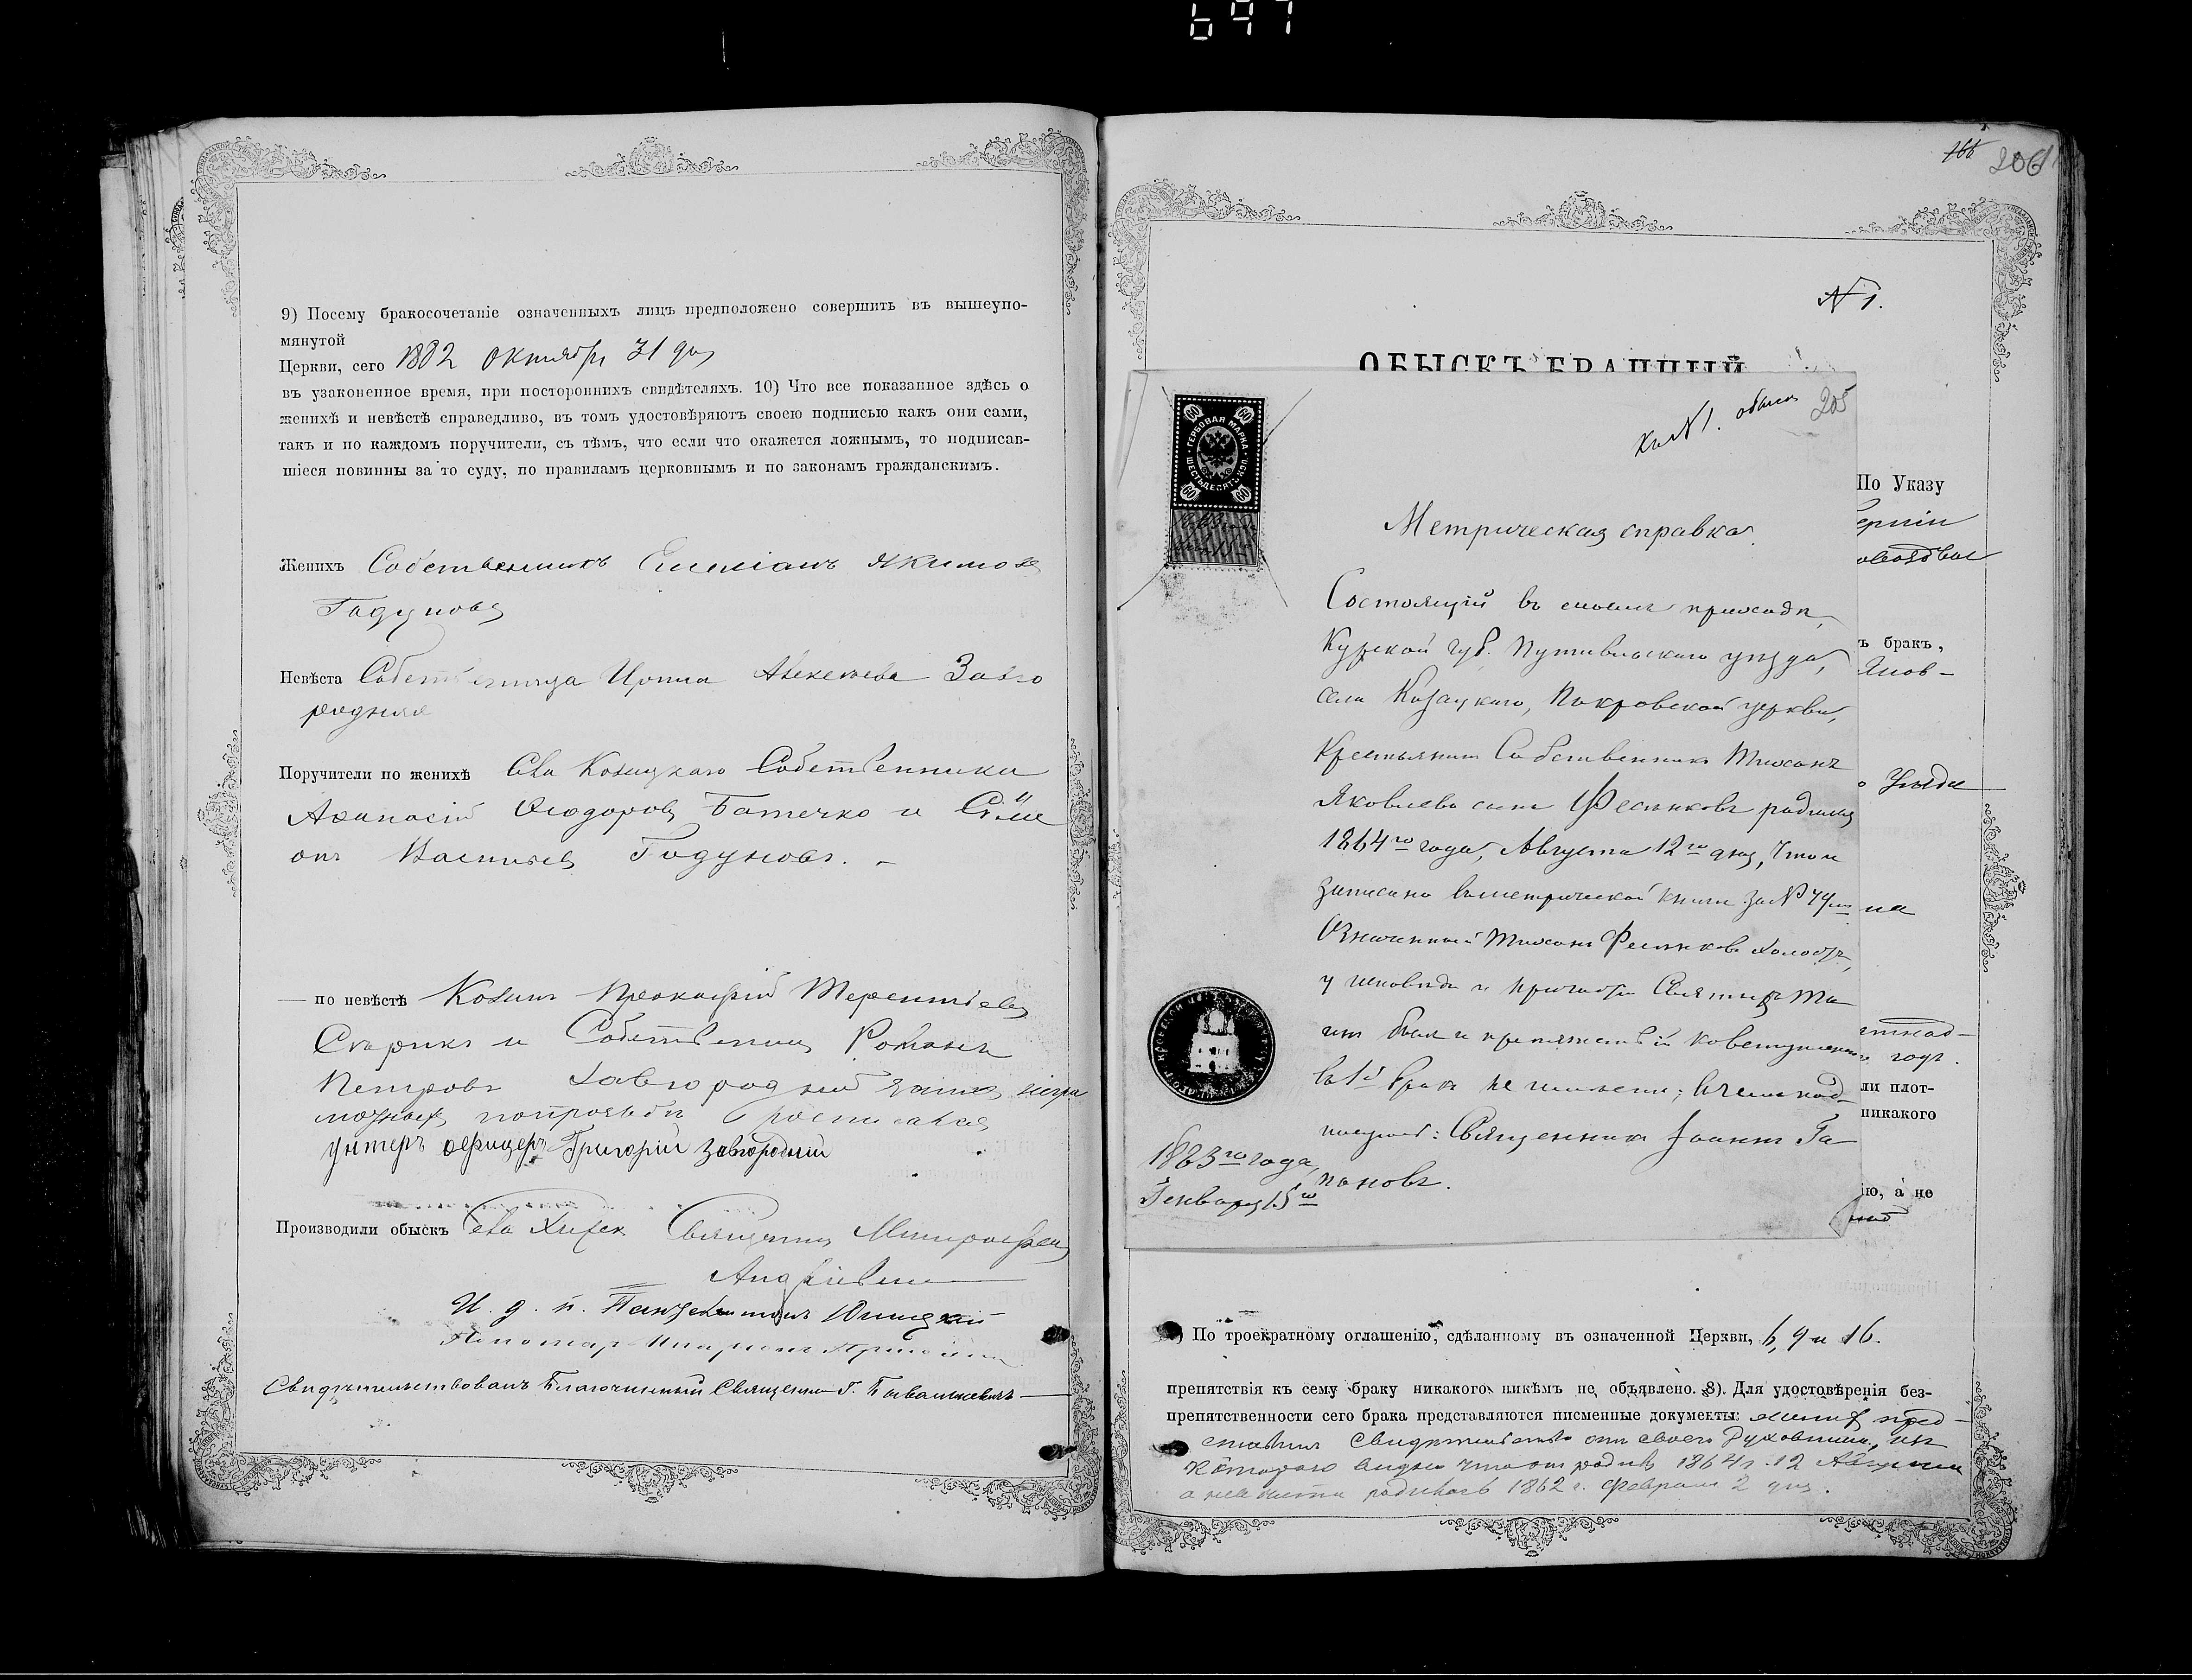 697
9) Посему бракосочетаніе означенныхъ лицъ предположено совершить въ вышеупо-
мянутой
Церкви, сего 1882 октября 31 дня
въ узаконенное время, при постороннихъ свидѣтеляхъ. 10) Что все показанное здѣсь о
женихѣ и невѣстѣ справедливо, въ томъ удостовѣряютъ своею подписью какъ они сами,
такъ и по каждомъ поручители, съ тѣмъ, что если что окажется ложнымъ, то подписав-
шіеся повинны за то суду, по правиламъ церковнымъ и по законамъ гражданскимъ.
Женихъ Собственникъ Емеліанъ Якимовъ
Годуновъ
Невѣста Собственница Ирина Авксентіева Заво
родняя
Поручители по женихѣ Села Козацкаго Собственники
Аѳанасій Ѳеодоровъ Батечко и Сѵме
онъ Василіевъ Годуновъ. –
— по невѣстѣ Козакъ Прокофій Терентіевъ
Старикъ и Собственникъ Романъ
Петровъ Завгородній за нихъ негра
мотныхъ по просьбѣ росписался
унтеръ офицеръ Григорій Завгородній
Производили обыскъ Села Священникъ Митрофанъ
Андріевский
И. д. п. Пантелеимонъ
Пономарь Иларіонъ
Свидѣтельствовалъ Благочинный Священникъ Г.
166 206
№ 1.
ОБЫСКЪ БРАЧНЫЙ
По Указу
ерніи
ъ бракъ,
Янов-
Уѣзда
на
годъ.
ли плот-
никакого
ію, а не
Къ № 1. обыска 205
ГЕРБОВАЯ МАРКА
ШЕСТЬДЕСЯТЪ КОП.
60 60
60 60
1883 года
Янва 15го
Метрическая справка
Состоящій въ моемъ приходѣ,
Курской губ. Путивльскаго уѣзда,
села Козацкаго, Покровской церкви,
Крестьянинъ Собственникъ Тихонъ
Яковлевъ сынъ Фесенковъ родился
1864го года, Августа 12го дня, что и
записано въ метрической книгѣ за № 74мъ
Означенный Тихонъ Фесенковъ холостъ,
у исповѣди и причастія Святыхъ Та
инъ былъ и препятствій ко вступленію
въ 1й бракъ не имѣетъ; въ чемъ и под-
писуюсь: Священникъ Іоаннъ Га
пановъ.
1883го года,
Генваря 15го
) По троекратному оглашенію, сдѣланному въ означенной Церкви, 6, 9 и 16.
препятствія къ сему браку никакого никѣмъ не объявлено. 8). Для удостовѣренія без-
препятственности сего брака представляются писменные документы: женихъ пред-
ставилъ свидѣтельство отъ своего Духовника, изъ
котораго видно что онъ родился 1864 г. 12 Августа
а невѣста родилась 1862 г. Февраля 2 дня.